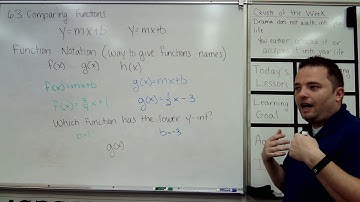 6.3 Comparing Functions
y=mx+b y=mx+b
Function Notation (way to give functions names)
f(x) g(x) h(x)
f(x)=mx+b g(x)=mx+b
f(x)= x+1 g(x)=½x-3
Which function has the lower y-int?
b=1 b=-3
g(x)
Quote of the Week
Drama does not walk into
life
You either
it into your life
Today's
Lesson
Learning
Goal